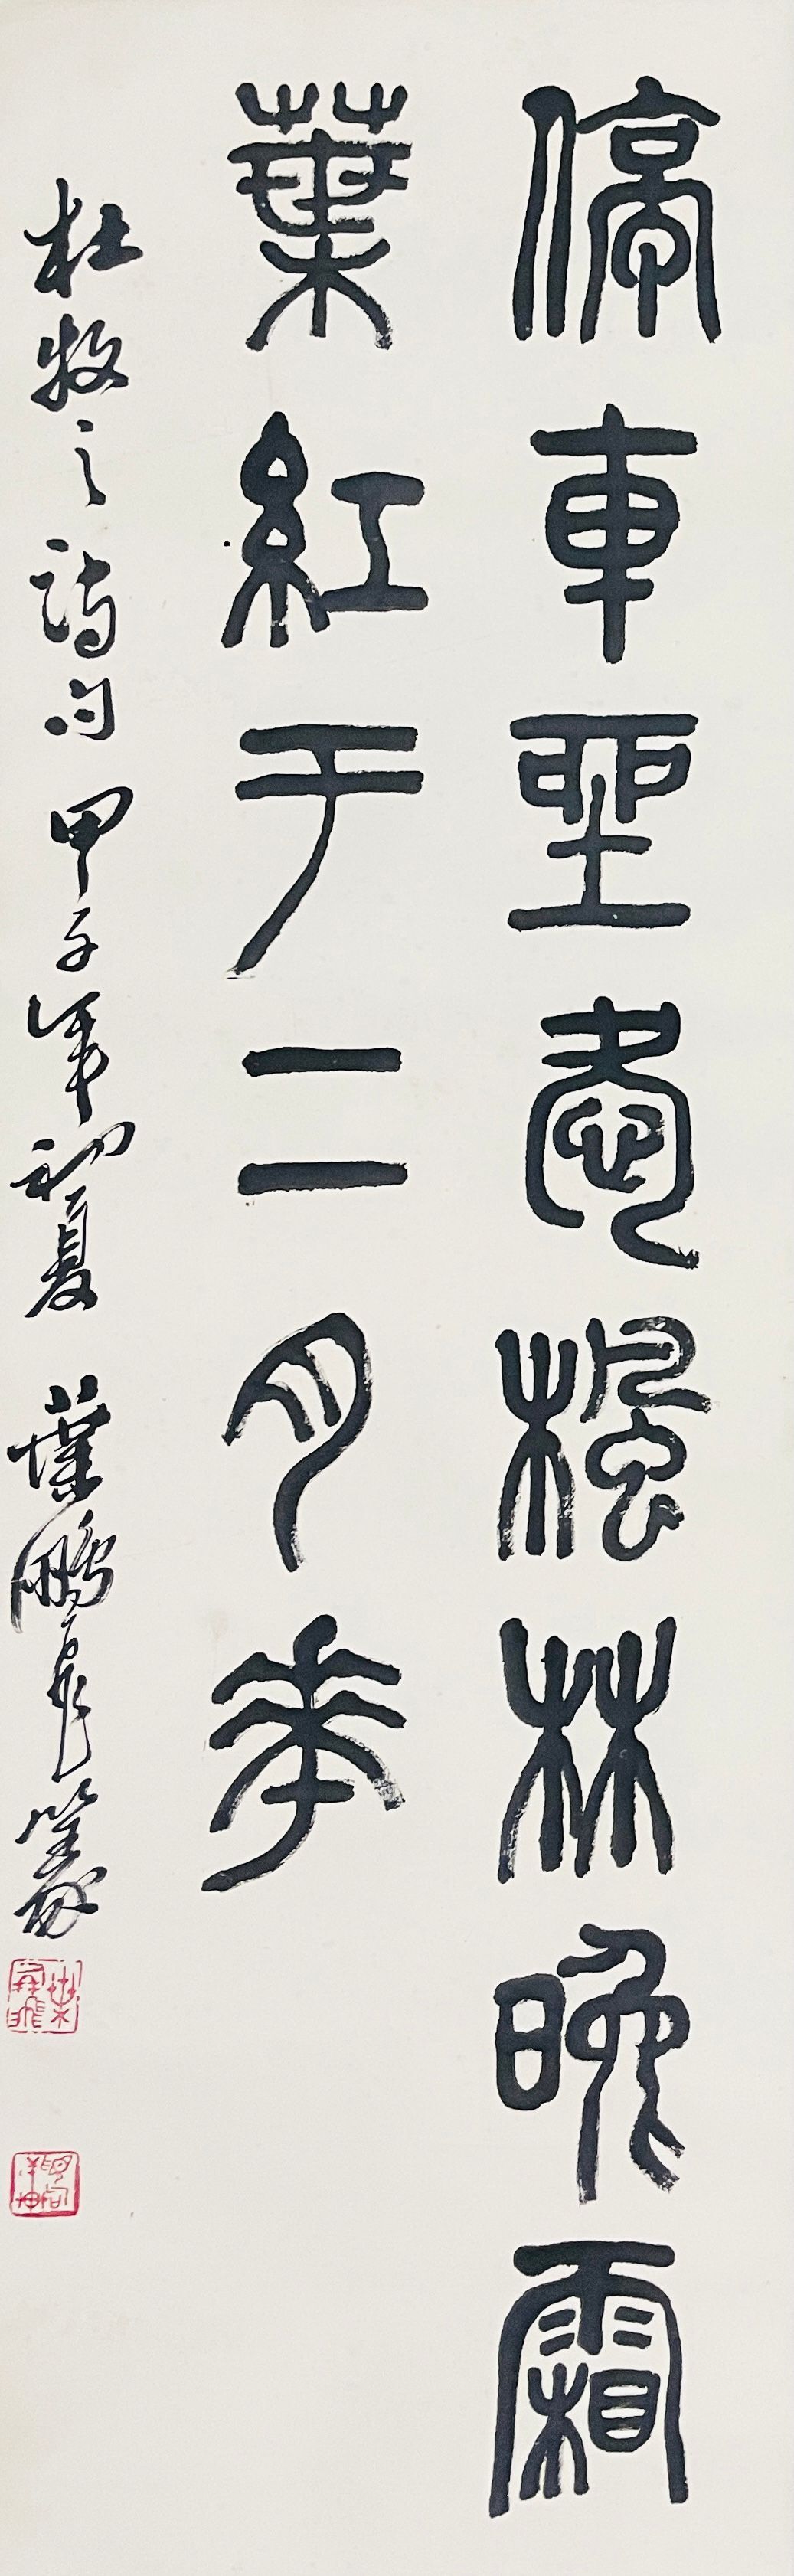 停車坐愛楓林晚霜
葉紅于二月花
杜牧之詩句 甲子年初夏 葉鵬飛篆
葉鵬飛